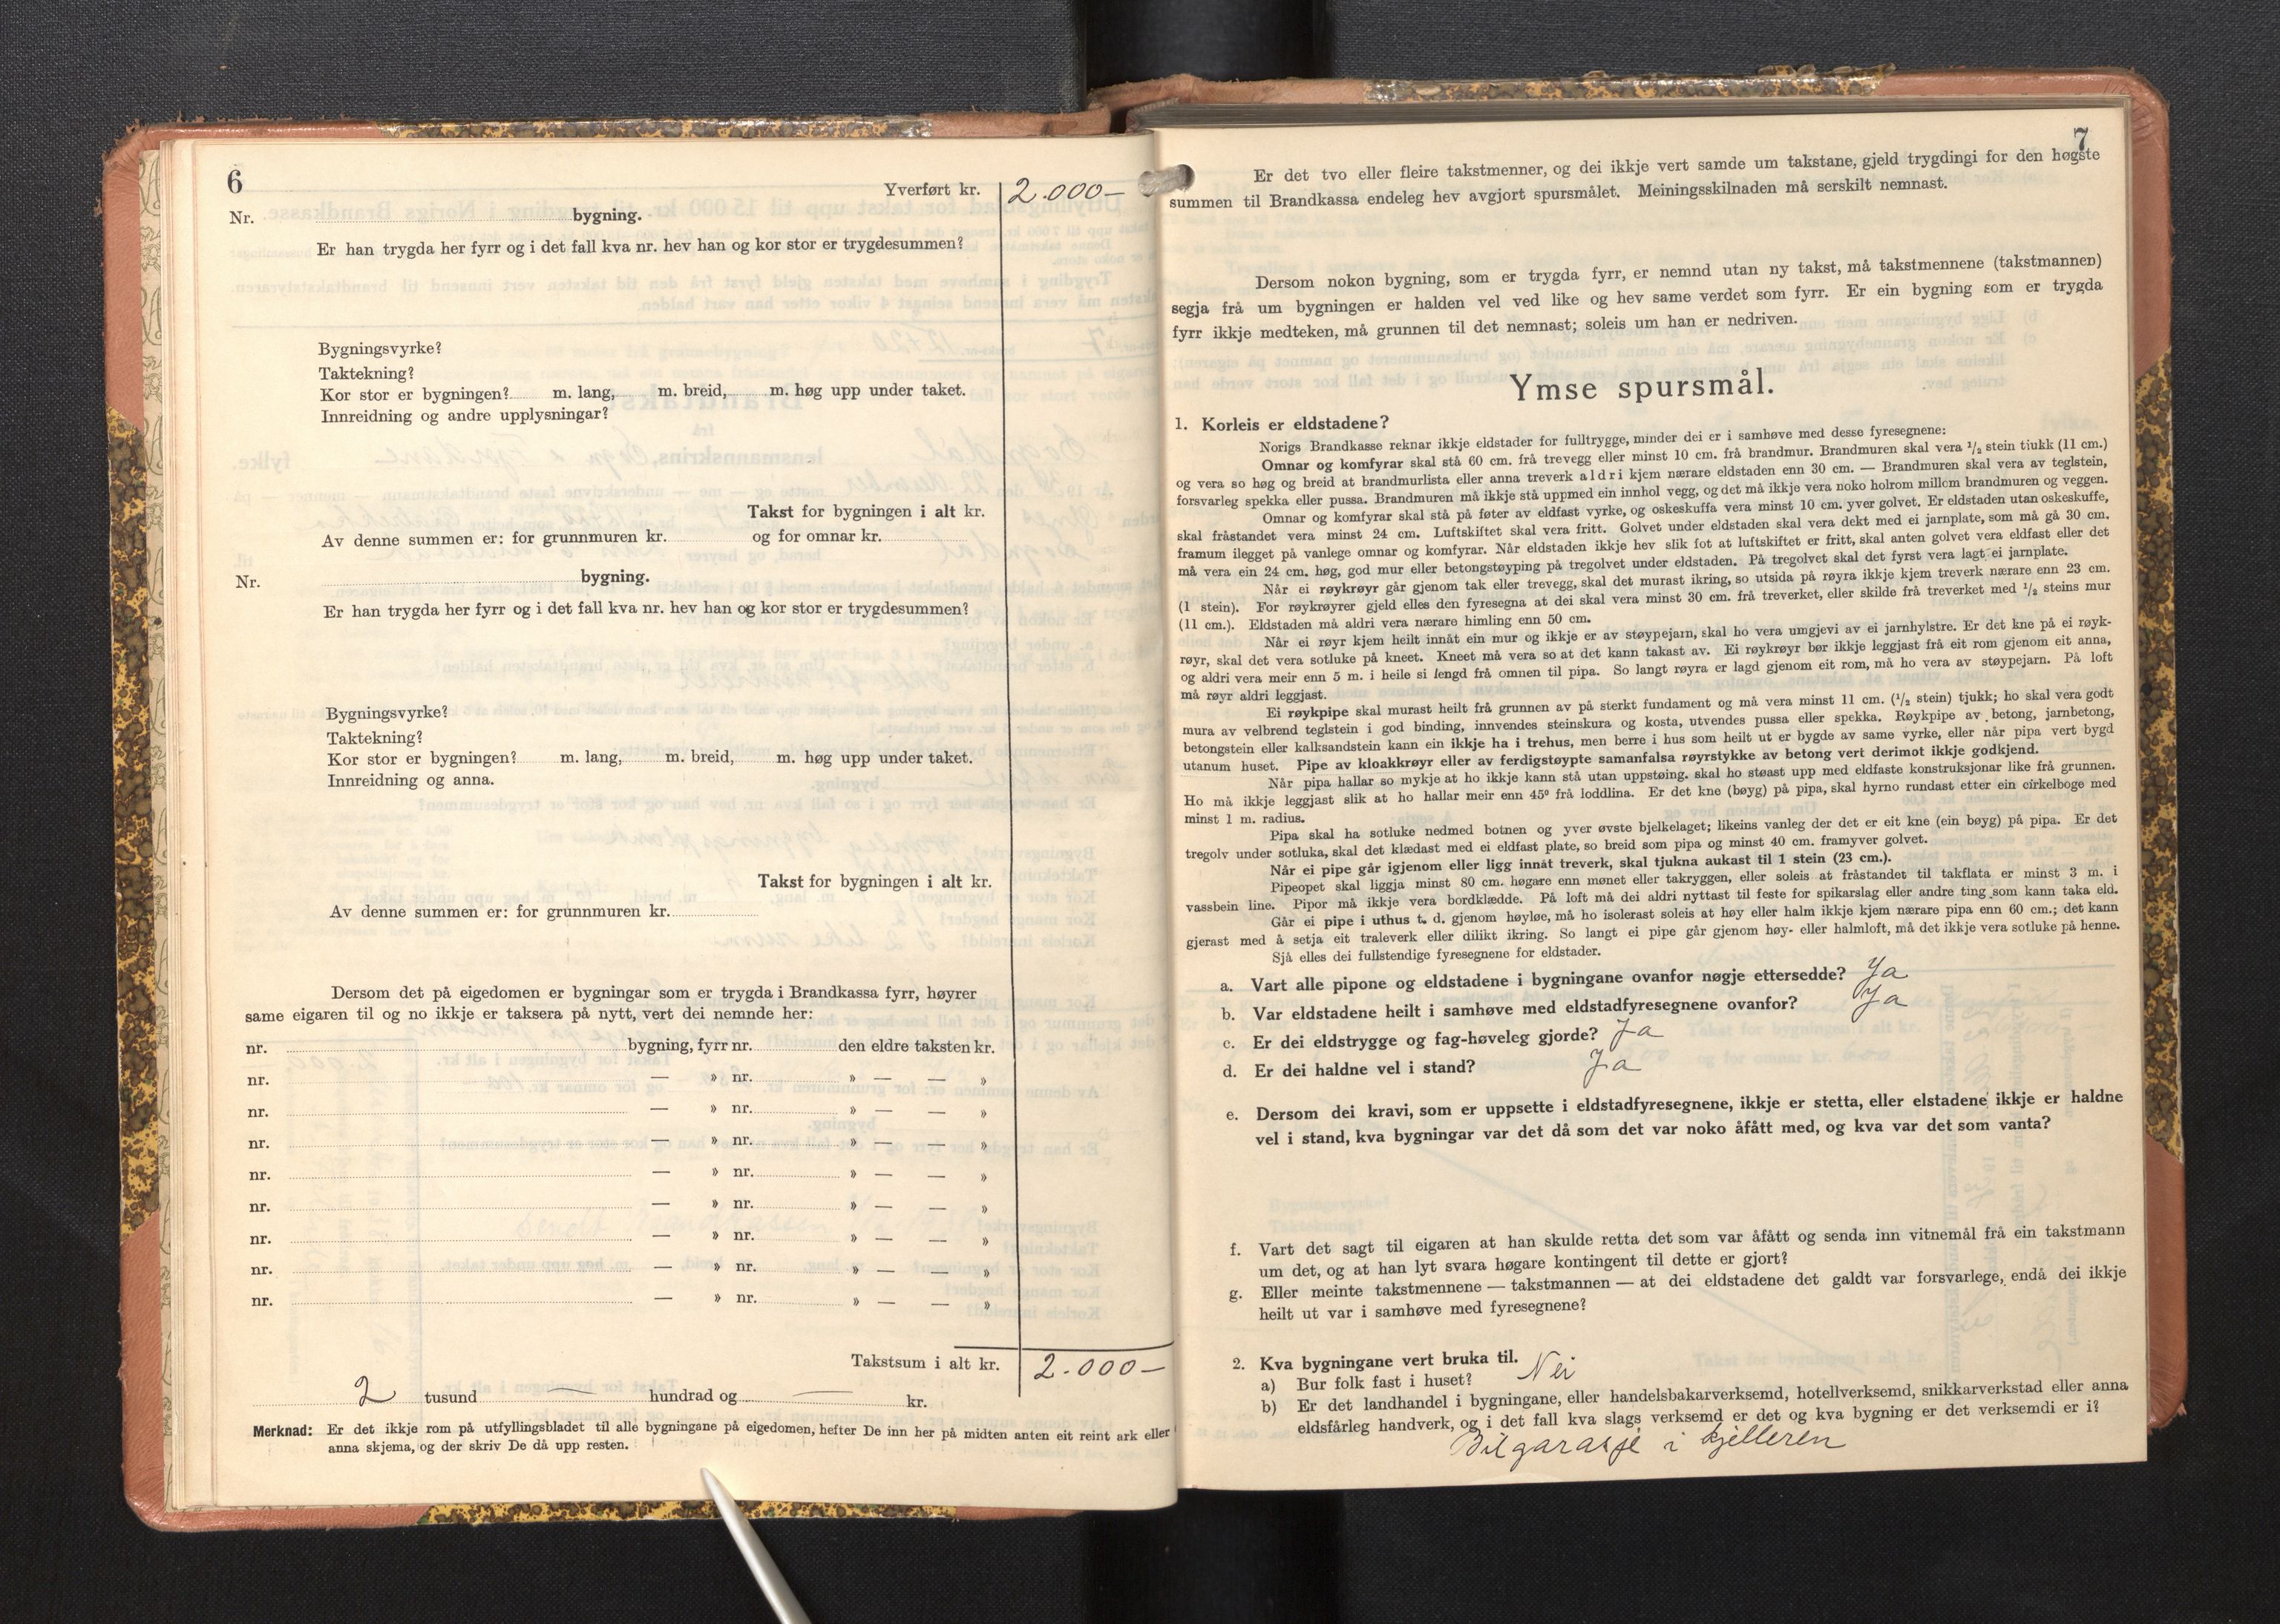 6
Yverført kr. 2.000-
Nr. bygning.
Er han trygda her fyrr og i det fall kva nr. hev han og kor stor er trygdesummen?
Bygningsvyrke?
Taktekning?
Kor stor er bygningen? m. lang, m. breid, m. høg upp under taket.
Innreidning og andre upplysningar?
Takst for bygningen i alt kr.
Av denne summen er: for grunnmuren kr. og for omnar kr.
Nr. bygning.
Er han trygda her fyrr og i det fall kva nr. hev han og kor stor er trygdesummen?
Bygningsvyrke?
Taktekning?
Kor stor er bygningen? m. lang, m. breid, m. høg upp under taket.
Innreidning og anna.
Takst for bygningen i alt kr.
Av denne summen er: for grunnmuren kr.
Dersom det på eigedomen er bygningar som er trygda i Brandkassa fyrr, høyrer
same eigaren til og no ikkje er taksera på nytt, vert dei nemnde her:
nr. bygning, fyrr nr. den eldre taksten kr.
nr. — » nr. » — — »
nr. — » nr. » — — »
nr. — » nr. » — — »
nr. — » nr. » — — »
nr. — » nr. » — — »
nr. — » nr. » — — »
nr. — » nr. » — — »
nr. — » nr. » — — »
Takstsum i alt kr. 2.000-
2 tusund — hundrad og — kr.
Merknad: Er det ikkje rom på utfyllingsbladet til alle bygningane på eigedomen, hefter De inn her på midten anten eit reint ark eller
anna skjema, og der skriv De då upp resten.
7
Er det tvo eller fleire takstmenner, og dei ikkje vert samde um takstane, gjeld trygdingi for den høgste
summen til Brandkassa endeleg hev avgjort spursmålet. Meiningsskilnaden må serskilt nemnast.
Dersom nokon bygning, som er trygda fyrr, er nemnd utan ny takst, må takstmennene (takstmannen)
segja frå um bygningen er halden vel ved like og hev same verdet som fyrr. Er ein bygning som er trygda
fyrr ikkje medteken, må grunnen til det nemnast; soleis um han er nedriven.
Ymse spursmål.
1. Korleis er eldstadene?
Norigs Brandkasse reknar ikkje eldstader for fulltrygge, minder dei er i samhøve med desse fyresegnene:
Omnar og komfyrar skal stå 60 cm. frå trevegg eller minst 10 cm. frå brandmur. Brandmuren skal vera 1/2 stein tiukk (11 cm.)
og vera so høg og breid at brandmurlista eller anna treverk aldri kjem nærare eldstaden enn 30 cm. — Brandmuren skal vera av teglstein,
forsvarleg spekka eller pussa. Brandmuren må ikkje stå uppmed ein innhol vegg, og det må ikkje vera noko holrom millom brandmuren og veggen.
Omnar og komfyrar skal stå på føter av eldfast vyrke, og oskeskuffa vera minst 10 cm. yver golvet. Er eldstaden utan oskeskuffe,
skal fråstandet vera minst 24 cm. Luftskiftet skal vera fritt. Golvet under eldstaden skal vera dekt med ei jarnplate, som må gå 30 cm.
framum ilegget på vanlege omnar og komfyrar. Når eldstaden ikkje hev slik fot at luftskiftet er fritt, skal anten golvet vera eldfast eller det
må vera ein 24 cm. høg, god mur eller betongstøyping på tregolvet under eldstaden. På tregolvet skal det fyrst vera lagt ei jarnplate.
Når ei røykrøyr går gjenom tak eller trevegg, skal det murast ikring, so utsida på røyra ikkje kjem treverk nærare enn 23 cm.
(1 stein). For røykrøyrer gjeld elles den fyresegna at dei skal vera minst 30 cm. frå treverket, eller skilde frå treverket med 1/2 steins mur
(11 cm.). Eldstaden må aldri vera nærare himling enn 50 cm.
Når ei røyr kjem heilt innåt ein mur og ikkje er av støypejarn, skal ho vera umgjevi av ei jarnhylstre. Er det kne på ei røyk-
røyr, skal det vera sotluke på kneet. Kneet må vera so at det kann takast av. Ei røykrøyr bør ikkje leggjast frå eit rom gjenom eit anna,
og aldri vera meir enn 5 m. i heile si lengd frå omnen til pipa. So langt røyra er lagd gjenom eit rom, må ho vera av støypejarn. På loft
må røyr aldri leggjast.
Ei røykpipe skal murast heilt frå grunnen av på sterkt fundament og må vera minst 11 cm. (1/2 stein) tjukk; ho skal vera godt
mura av velbrend teglstein i god binding, innvendes steinskura og kosta, utvendes pussa eller spekka. Røykpipe av betong, jarnbetong,
betongstein eller kalksandstein kann ein ikkje ha i trehus, men berre i hus som heilt ut er bygde av same vyrke, eller når pipa vert bygd
utanum huset. Pipe av kloakkrøyr eller av ferdigstøypte samanfalsa røyrstykke av betong vert derimot ikkje godkjend.
Når pipa hallar so mykje at ho ikkje kann stå utan uppstøing. skal ho støast upp med eldfaste konstruksjonar like frå grunnen.
Ho må ikkje leggjast slik at ho hallar meir enn 45° frå loddlina. Er det kne (bøyg) på pipa, skal hyrno rundast etter ein cirkelboge med
minst 1 m. radius.
Pipa skal ha sotluke nedmed botnen og yver øvste bjelkelaget; likeins vanleg der det er eit kne (ein bøyg) på pipa. Er det
tregolv under sotluka, skal det klædast med ei eldfast plate, so breid som pipa og minst 40 cm. framyver golvet.
Når ei pipe går igjenom eller ligg innåt treverk, skal tjukna aukast til 1 stein (23 cm.).
Pipeopet skal liggja minst 80 cm. høgare enn mønet eller takryggen, eller soleis at fråstandet til takflata er minst 3 m. i
vassbein line. Pipor må ikkje vera bordklædde. På loft må dei aldri nyttast til feste for spikarslag eller andre ting som kann taka eld.
Går ei pipe i uthus t. d. gjenom høyløe, må ho isolerast soleis at høy eller halm ikkje kjem nærare pipa enn 60 cm.; det kann
gjerast med å setja eit traleverk eller dilikt ikring. So langt ei pipe går gjenom høy- eller halmloft, må det ikkje vera sotluke på henne.
Sjå elles dei fullstendige fyresegnene for eldstader.
a. Vart alle pipone og eldstadene i bygningane ovanfor nøgje ettersedde? Ja
b. Var eldstadene heilt i samhøve med eldstadfyresegnene ovanfor? Ja
c. Er dei eldstrygge og fag-høveleg gjorde? Ja
d. Er dei haldne vel i stand? Ja
e. Dersom dei kravi, som er uppsette i eldstadfyresegnene, ikkje er stetta, eller elstadene ikkje er haldne
vel i stand, kva bygningar var det då som det var noko åfått med, og kva var det som vanta?
f. Vart det sagt til eigaren at han skulde retta det som var åfått og senda inn vitnemål frå ein takstmann
um det, og at han lyt svara høgare kontingent til dette er gjort?
g. Eller meinte takstmennene — takstmannen — at dei eldstadene det galdt var forsvarlege, endå dei ikkje
heilt ut var i samhøve med fyresegnene?
2. Kva bygningane vert bruka til.
a) Bur folk fast i huset? Nei
b) Er det landhandel i bygningane, eller handelsbakarverksemd, hotellverksemd, snikkarverkstad eller anna
eldsfårleg handverk, og i det fall kva slags verksemd er det og kva bygning er det verksemdi er i?
Bilgarasje i kjelleren